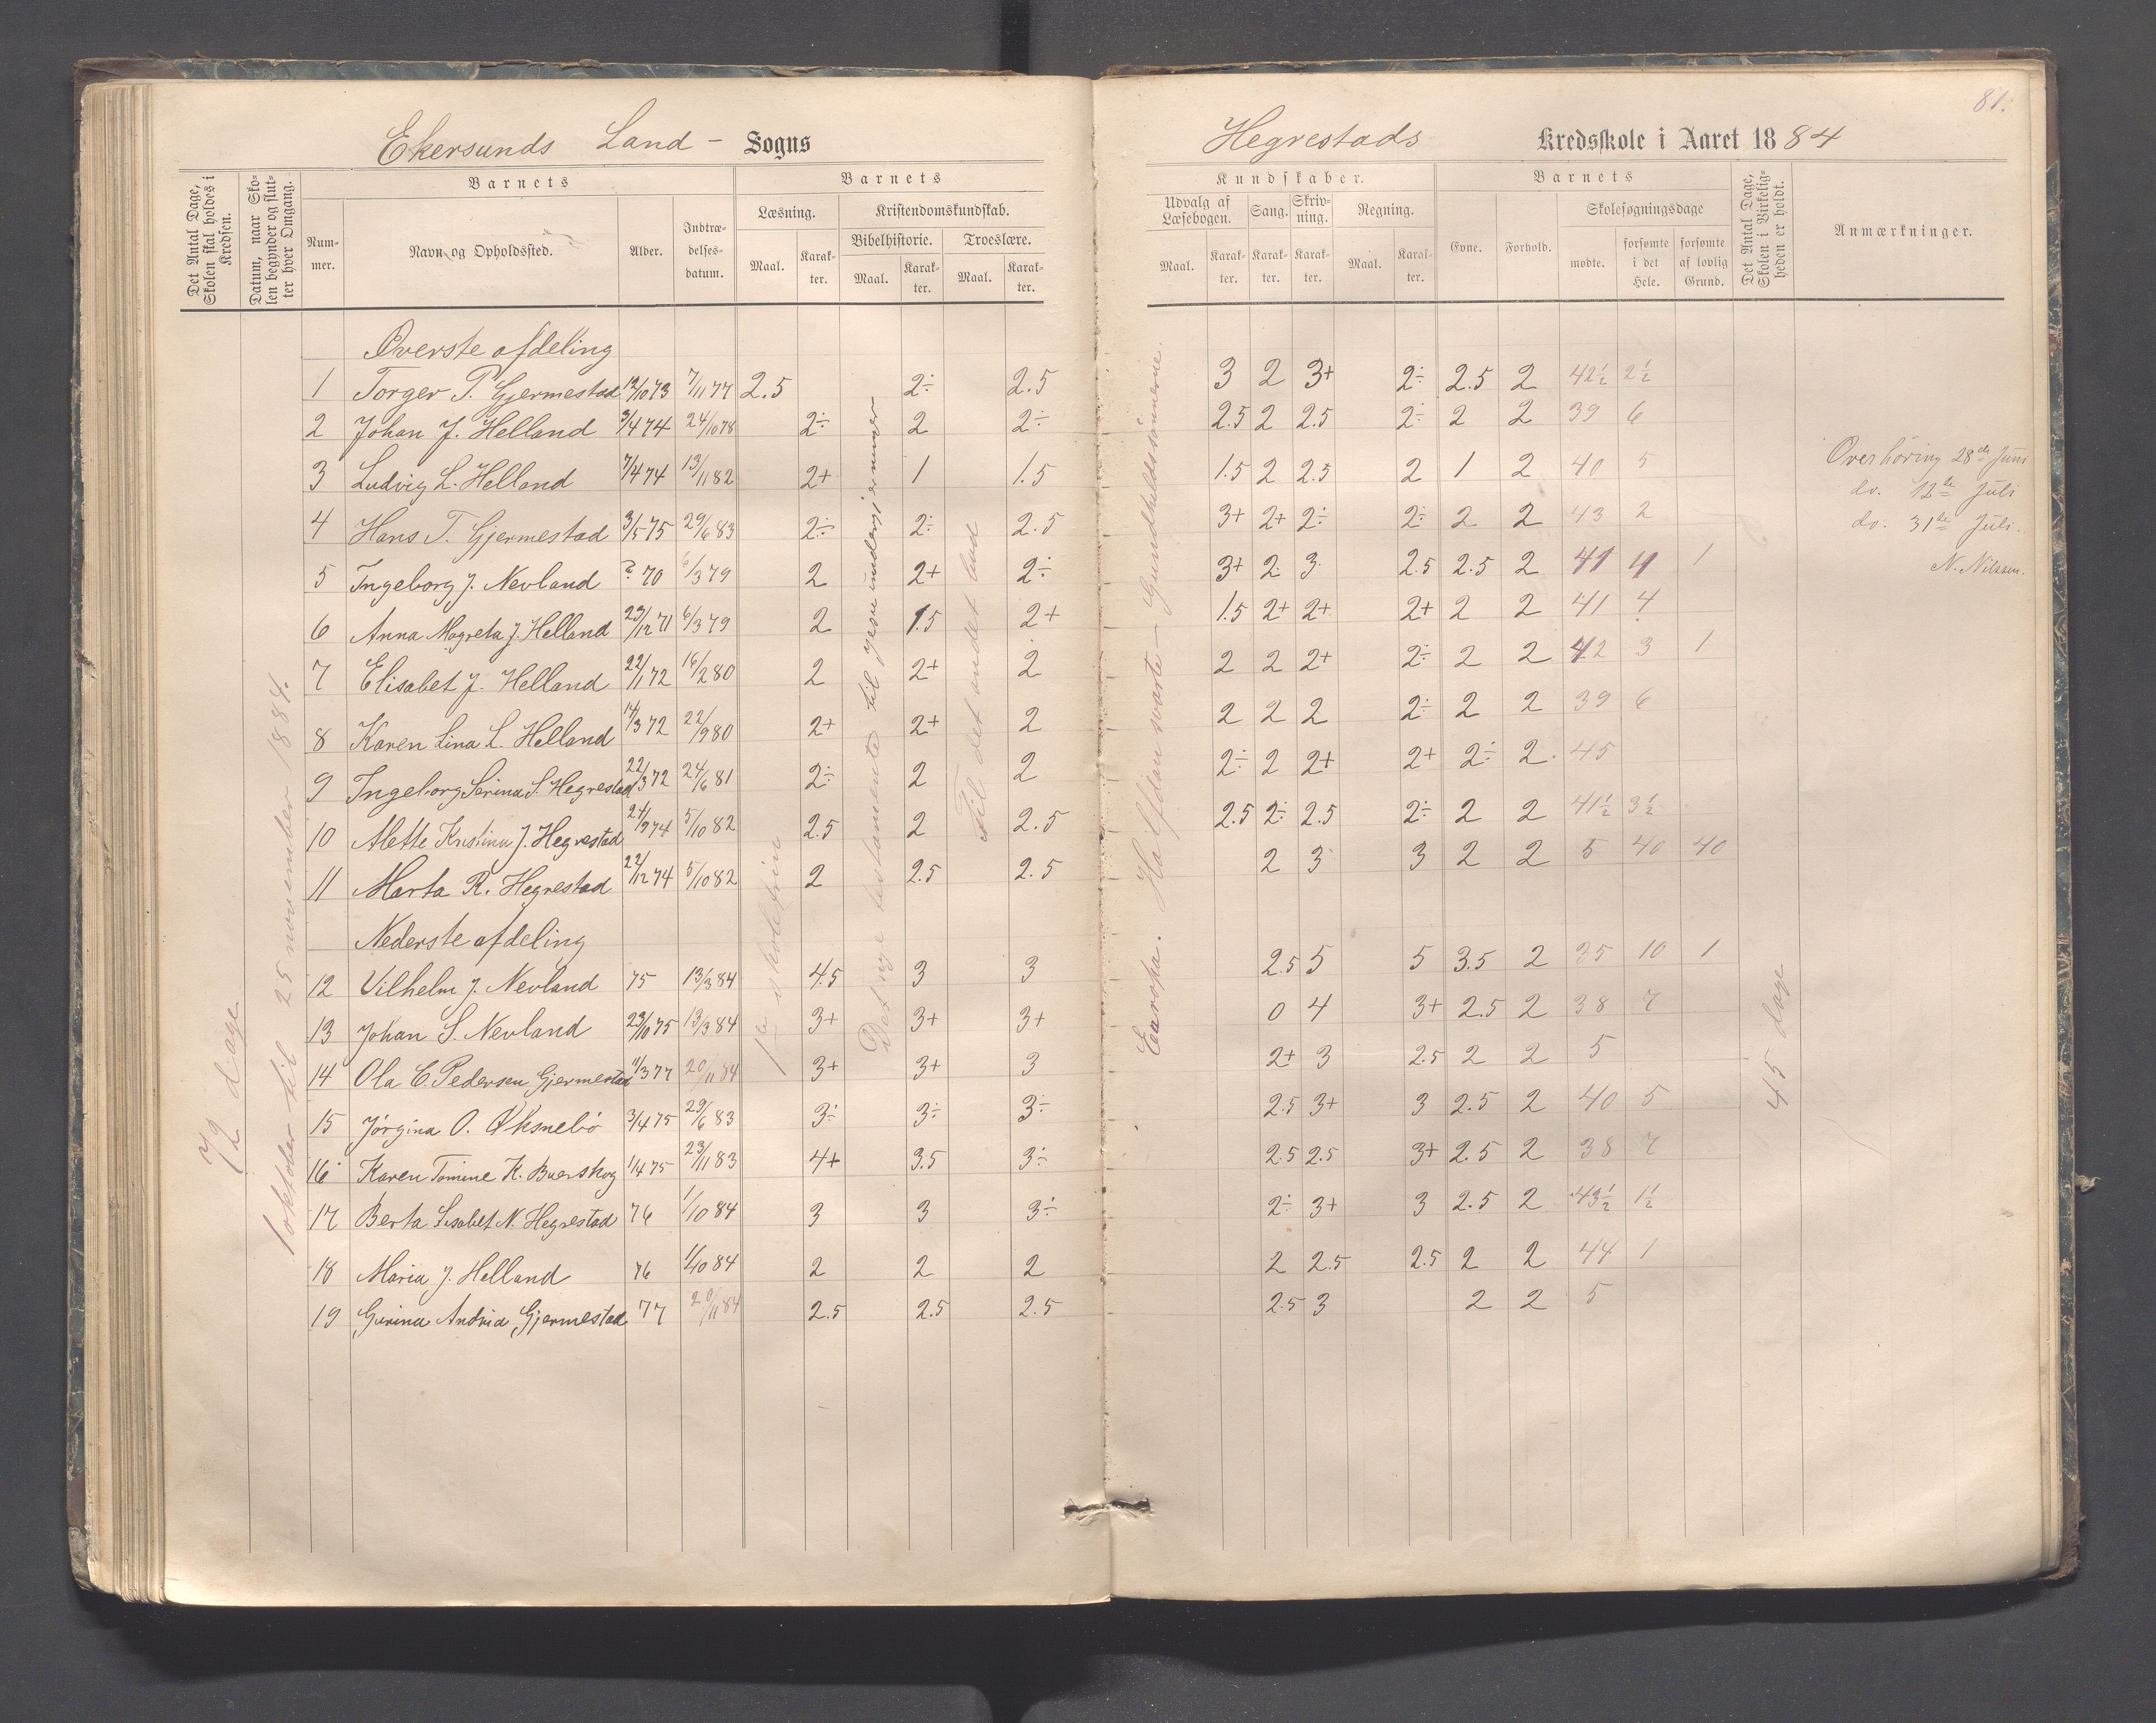 81.
Ekersunds Land - Sogns
Hegrestads Kredsskole i Aaret 1884
Det Antal Dage, Skolen skal holdes i Kredsen.
Datum, naar Skolen begynder og slutter hver Omgang.
Barnets
Nummer.
Navn og Opholdssted.
Alder.
Indtrædelsesdatum.
Barnets
Læsning.
Maal.
Karakter.
Kristendomskundskab.
Bibelhistorie.
Maal.
Karakter.
Troeslære.
Maal.
Karakter.
Kundskaber.
Udvalg af Læsebogen.
Maal.
Karakter.
Sang.
Karakter.
Skrivning.
Karakter.
Regning.
Maal.
Karakter.
Barnets
Evne.
Forhold.
Skolesøgningsdage
mødte.
forsømte i det Hele.
forsømte af lovlig Grund.
Det Antal Dage, Skolen i Virkeligheden er holdt.
Anmærkninger.
72 dage
1 oktober til 25 november 1884.
Det nye testamente til Jesu undergjerninger
Til det andet bud
Halfdan svarte - Grundholdssønnerne.
Europa.
45 dage
Øverste afdeling
1 Torger P. Gjermestad 12/10 73 7/11 77 2.5 2÷ 2.5 3 2 3+ 2÷ 2.5 2 42½ 2½
2 Johan J. Helland 3/4 74 24/10 78 2÷ 2 2÷ 2.5 2 2.5 2÷ 2 2 39 6
3 Ludvig L. Helland 7/4 74 13/11 82 2+ 1 1.5 1.5 2 2.5 2 1 2 40 5
4 Hans T. Gjermestad 3/5 75 29/6 83 2÷ 2÷ 2.5 3+ 2+ 2÷ 2÷ 2 2 43 2
5 Ingeborg J. Nevland ? 70 6/3 79 2 2+ 2÷ 3+ 2 3 2.5 2.5 2 41 4 1
6 Anna Magreta J. Helland 23/12 71 6/3 79 2 1.5 2+ 1.5 2+ 2+ 2+ 2 2 41 4
7 Elisabet J. Helland 22/1 72 16/2 80 2 2+ 2 2 2 2+ 2÷ 2 2 42 3 1
8 Karen Lina L. Helland 14/3 72 22/9 80 2+ 2+ 2 2 2 2 2÷ 2 2 39 6
9 Ingeborg Serina S. Hegrestad 22/3 72 24/6 81 2÷ 2 2 2÷ 2 2+ 2+ 2÷ 2 45
10 Mette Kristina J. Hegrestad 21/9 74 5/10 82 2.5 2 2.5 2.5 2÷ 2.5 2÷ 2 2 41½ 3½
11 Marta R. Hegrestad 22/12 74 5/10 82 2 2.5 2.5 2 3 3 2 2 5 40 40
Nederste afdeling
12 Vilhelm J. Nevland 75 13/3 84 4.5 3 3 2.5 5 5 3.5 2 35 10 1
13 Johan S. Nevland 23/10 75 13/3 84 3+ 3+ 3+ 0 4 3+ 2.5 2 38 7
14 Ola C. Pedersen Gjermestad 11/3 77 20/11 84 3+ 3+ 3 2+ 3 2.5 2 2 5
15 Jørgina O. Øksnebø 3/4 75 29/6 83 3÷ 3÷ 3÷ 2.5 3+ 3 2.5 2 40 5
16 Karen Tomine K. Buerskog 1/4 75 23/11 83 4+ 3.5 3÷ 2.5 2.5 3+ 2.5 2 38 7
17 Berta Lisabet N. Hegrestad 76 1/10 84 3 3 3÷ 2÷ 3+ 3 2.5 2 43½ 1½
18 Maria J. Helland 76 1/10 84 2 2 2 2 2.5 2.5 2 2 44 1
19 Gurina Andrea Gjermestad 77 20/11 84 2.5 2.5 2.5 2.5 3 2 2 5
Overhøring 28de Juni
do. 12te Juli
do. 31te Juli.
N. Nilssen.